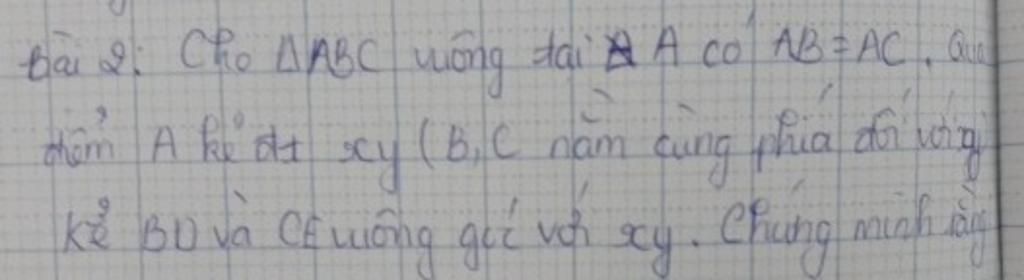 Bài 2: Cho ΔABC vuông tại A có AB = AC. Qua
điểm A kẻ đt xy (B, C nằm cùng phía đối với
Kẻ BD và CE vuông góc với xy. Chứng minh rằng